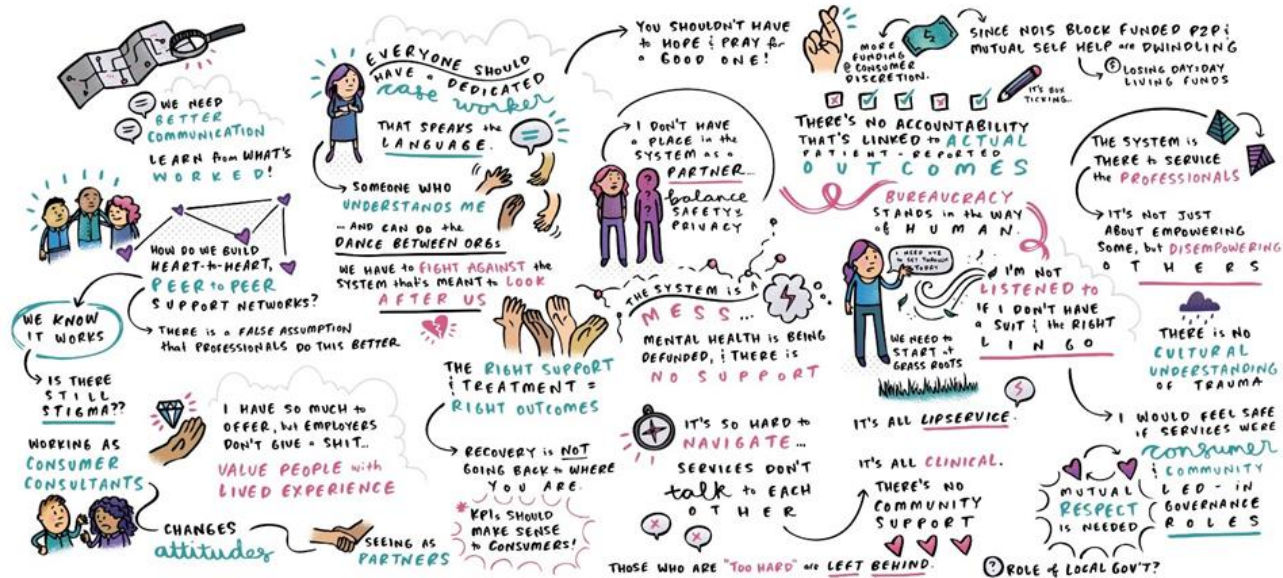 WE NEED
BETTER
COMMUNICATION
LEARN from WHAT'S
WORKED!
HOW DO WE BUILD
HEART-to-HEART,
PEER to PEER
SUPPORT NETWORKS?
THERE IS a FALSE ASSUMPTION
that PROFESSIONALS DO THIS BETTER.
WE KNOW
IT WORKS
IS THERE
STILL
STIGMA??
WORKING AS
CONSUMER
CONSULTANTS
CHANGES
attitudes
SEEING AS
PARTNERS
I HAVE SO MUCH to
OFFER, but EMPLOYERS
DON'T GIVE a SHIT...
VALUE PEOPLE with
LIVED EXPERIENCE
EVERYONE SHOULD
HAVE a DEDICATED
case worker
THAT SPEAKS the
LANGUAGE.
SOMEONE WHO
UNDERSTANDS ME
... AND CAN DO the
DANCE BETWEEN ORGs
WE HAVE to FIGHT AGAINST the
SYSTEM that's MEANT to LOOK
AFTER US
THE RIGHT SUPPORT
& TREATMENT =
RIGHT OUTCOMES
RECOVERY is NOT
GOING BACK to WHERE
YOU ARE.
* KPIs SHOULD
MAKE SENSE
to CONSUMERS!
YOU SHOULDN'T HAVE
to HOPE & PRAY for
a GOOD ONE!
I DON'T HAVE
a PLACE in the
SYSTEM as a
PARTNER...
balance
SAFETY &
PRIVACY
THE SYSTEM IS A
MESS...
MENTAL HEALTH IS BEING
DEFUNDED, & THERE IS
NO SUPPORT
IT'S SO HARD to
NAVIGATE...
SERVICES DON'T
talk to EACH
OTHER
THOSE WHO ARE "TOO HARD" are LEFT BEHIND.
MORE
FUNDING
@ CONSUMER
DISCRETION.
SINCE NDIS BLOCK FUNDED P2P &
MUTUAL SELF HELP are DWINDLING
LOSING DAY:DAY
LIVING FUNDS
IT'S BOX
TICKING...
THERE'S NO ACCOUNTABILITY
THAT'S LINKED to ACTUAL
PATIENT-REPORTED
OUTCOMES
BUREAUCRACY
STANDS in the WAY
of HUMAN.
I NEED
TO GET THROUGH
TODAY
I'M NOT
LISTENED to
IF I DON'T HAVE
a SUIT & the RIGHT
LINGO
WE NEED to
START at
GRASS ROOTS
IT'S ALL LIPSERVICE.
IT'S ALL CLINICAL.
THERE'S NO
COMMUNITY
SUPPORT
THE SYSTEM IS
THERE to SERVICE
the PROFESSIONALS
IT'S NOT JUST
ABOUT EMPOWERING
SOME, but DISEMPOWERING
OTHERS
THERE is NO
CULTURAL
UNDERSTANDING
OF TRAUMA
I WOULD FEEL SAFE
IF SERVICES WERE
consumer
& COMMUNITY
LED - IN
GOVERNANCE
ROLES
MUTUAL
RESPECT
is NEEDED
? ROLE of LOCAL GOV'T?